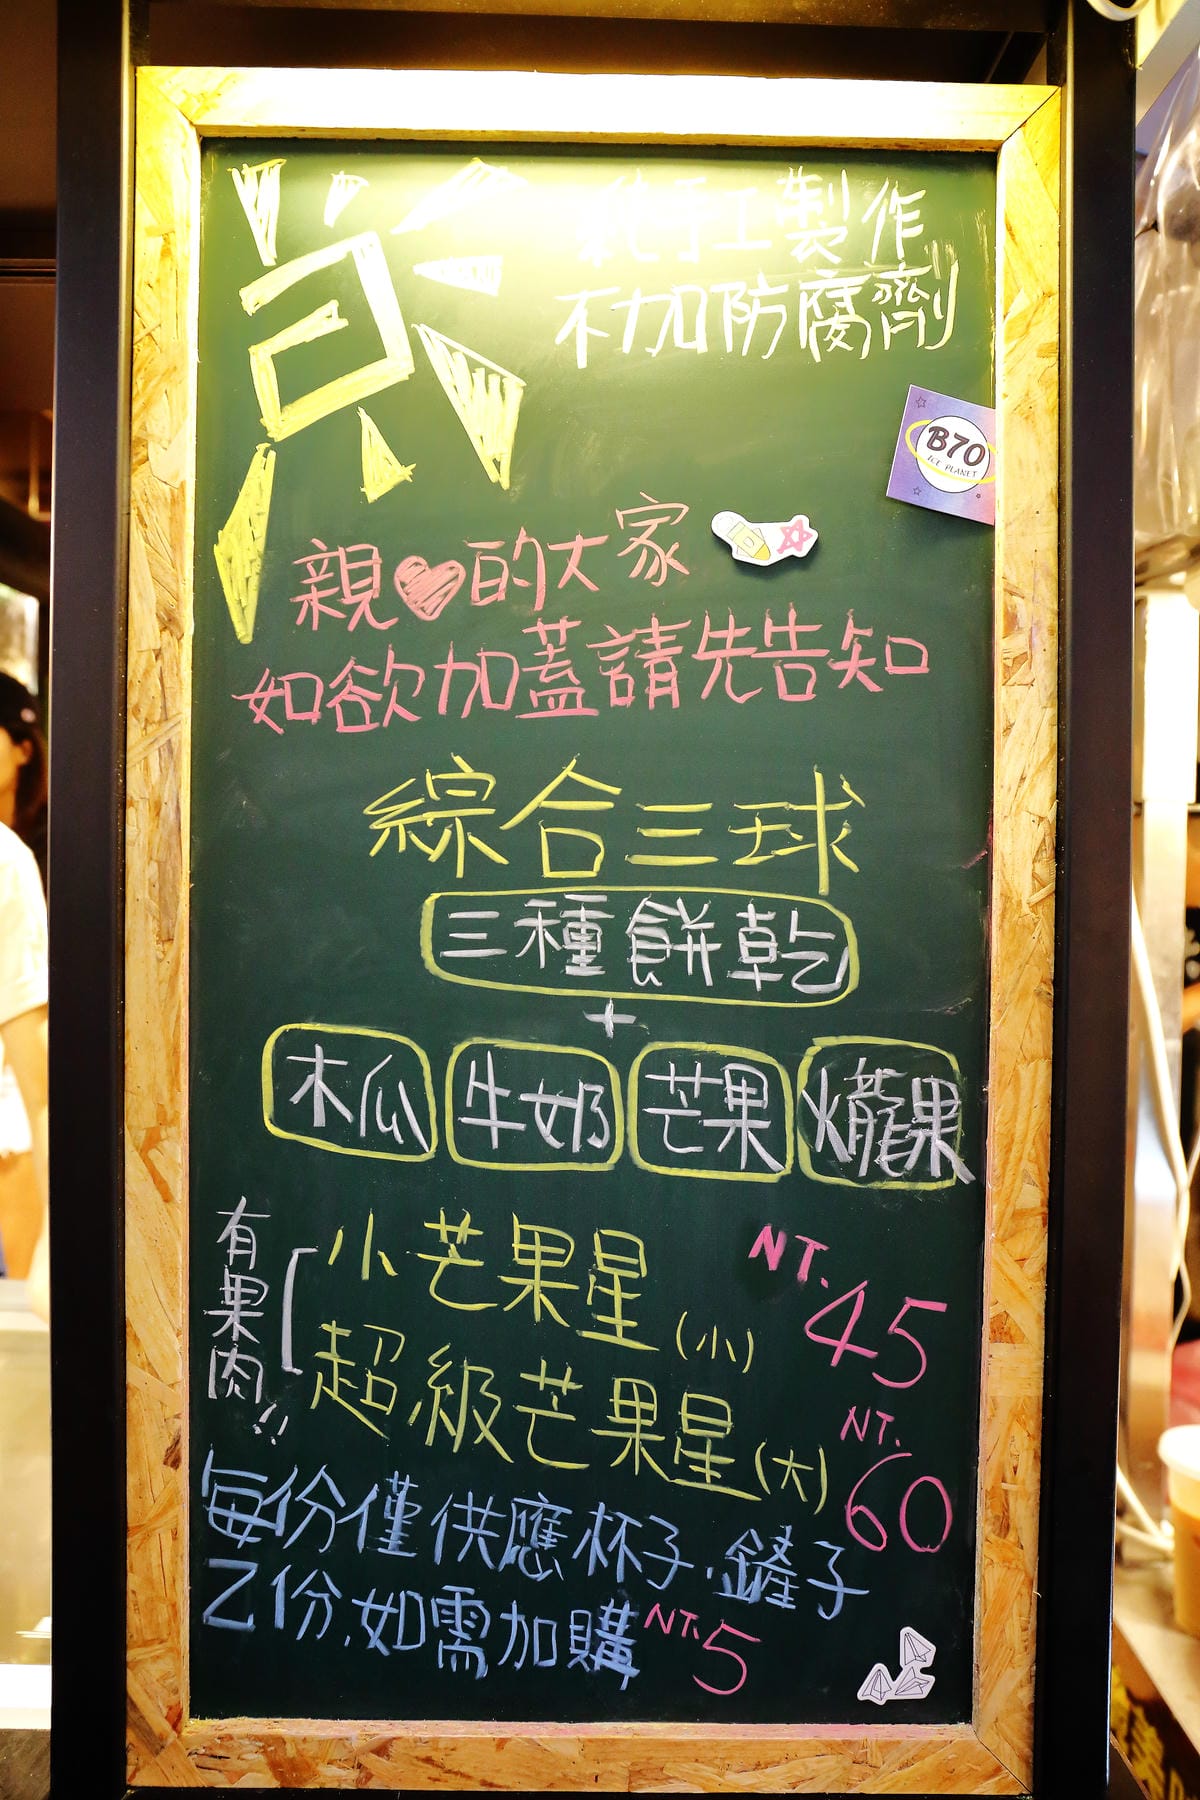 純手工製作
不加防腐劑
B70
ICE PLANET
親的大家
如欲加蓋請先告知
綜合三球
三種餅乾
+
木瓜 牛奶 芒果 火龍果
有果肉!!
小芒果星(小) NT.45
超級芒果星(大) NT.60
每份僅供應杯子.鏟子
乙份.如需加購NT.5